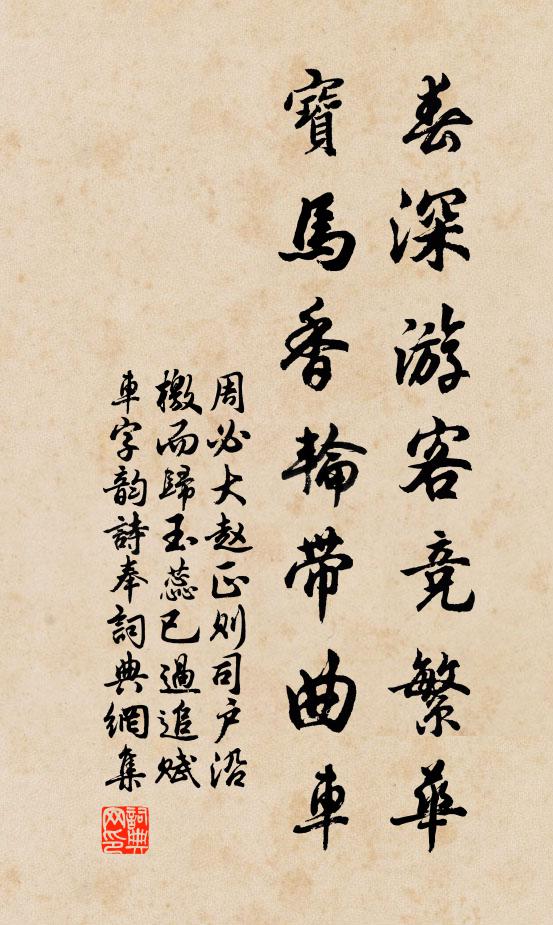 春深游客竞繁華
寶馬香輪帶曲車
周必大赵正则司户沿
檄而歸玉蕊已過追赋
車字韵詩奉詞典網集
詞典网印